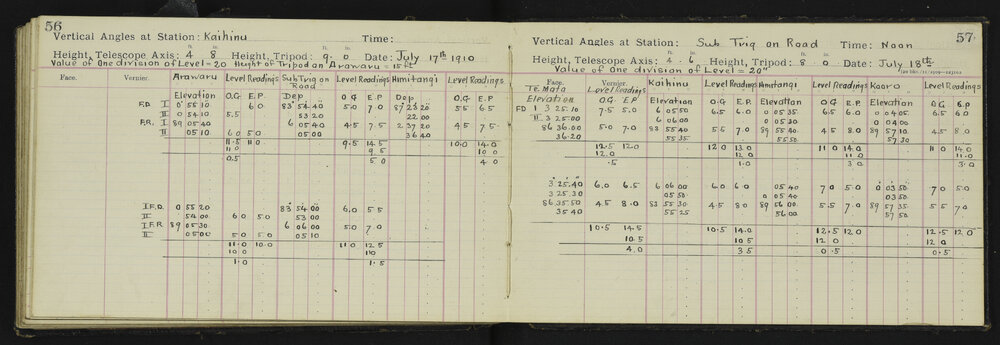 56
Vertical Angles at Station: Kaihinu Time:
ft. in. ft. in.
Height, Telescope Axis: 4 8 Height, Tripod: 9. 0 Date: July 17th 1910
Value of One division of Level = 20 Height of Tripod on Arawaru = 15ft
Face. Vernier. Arawaru Level Readings Sub Trig on Road Level Readings Himitangi Level Readings
Elevation O.G E.P. Dep O G E.P. Dep. O.G E.P.
F.D. I 0 55 10 6 0 83 54 40 5.0 7.0 87 23 20 5 5 6.5
II 0 54 10 5.5 53 20 22 00
F.R. I 89 05 40 6 05 40 4.5 7.5 2 37 20 4 5 7 5
II 05 10 6 0 5 0 05 00 36 40
11.5 11 0 9.5 14.5 10.0 14.0
11 0 9 5 10 0
0.5 5 0 4 0
I F.D. 0 55 20 83 54 00 6.0 5 5
II 54 00 6 0 5 0 53 00
I F.R 89 05 30 6 06 00 5.0 7.0
II 05 00 5 0 5 0 05 10
11.0 10.0 11 0 12 5
10 0 110
1.0 1.5
57
Vertical Angles at Station: Sub Trig on Road Time: Noon
ft. in. ft. in.
Height, Telescope Axis: 4 . 6 Height, Tripod: 8 0 Date: July 18th
Value of one division of Level = 20"
Face. Vernier. Kaihinu Level Readings Himitangi Level Readings Kaoro Level Readings
Te Mata Level Readings
Elevation O.G E.P Elevation O.G E.P. Elevation O.G E.P. Elevation O G E.P
FD I 3 25.10 7.5 5.0 6 05 50 6.5 6.0 0 05 35 6.5 6.0 0 04 05 6.5 6.0
II 3 25 00 6 06 00 0 05 30 0 04 00
86 36.00 5.0 7.0 83 55 40 5 5 7.0 89 55 40 4.5 8.0 89 57 10 4.5 8.0
36.20 55 35 55 50 57 30
12.5 12.0 12 0 13 0 11 0 14 0 11 0 14 0
12.0 12 0 11 0 11.0
.5 1.0 3 0 3.0
3 25.40 6.0 6.5 6 06 00 6.0 6.0 05 40 7 0 5.0 0 03 50 7 0 5.0
3 25.30 05 50 0 05 40 03 50
86 35 50 4.5 8.0 83 55 30 4.5 8.0 89 56 00 5.5 7.0 89 57 35 5.5 7.0
35 40 55 25 56 00 57 50
10.5 14.5 10.5 14.0 12.5 12.0 12.5 12 0
10.5 10 5 12 0 12 0
4.0 3 5 0.5 0.5